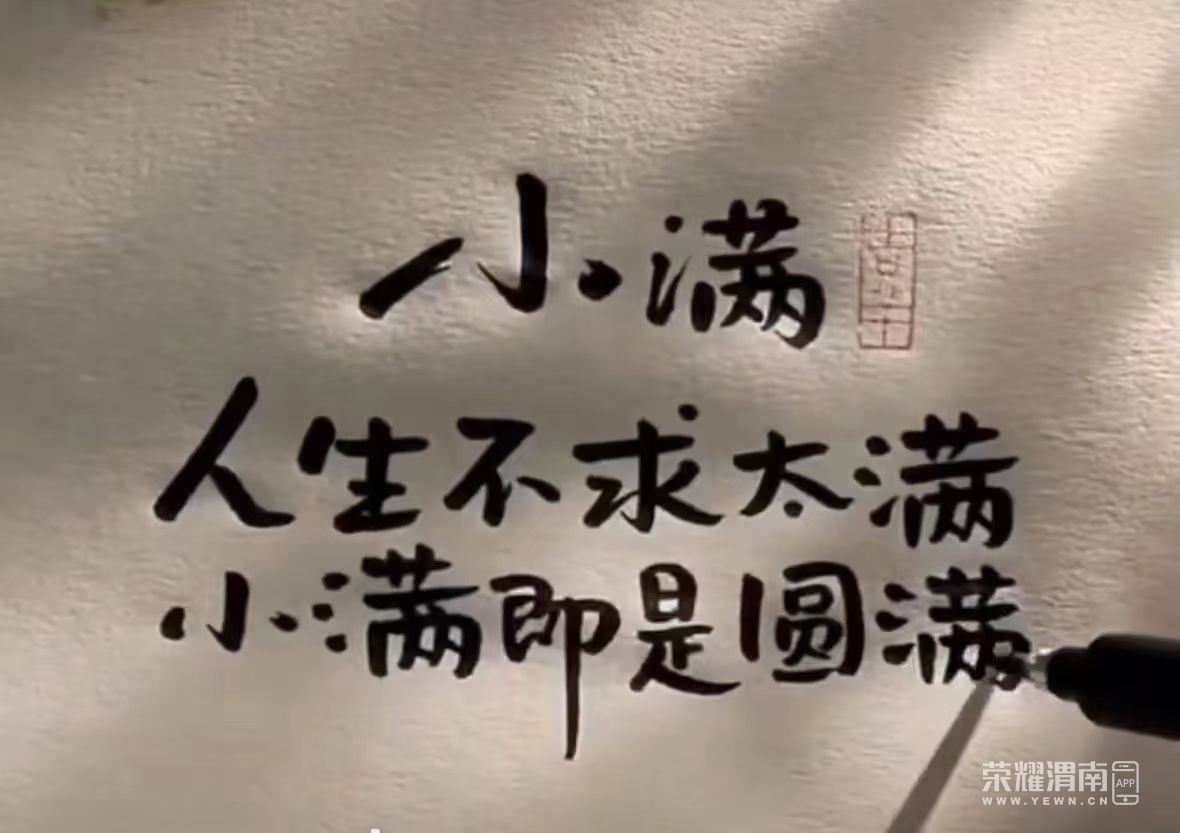 小满
人生不求太满
小满即是圆满
荣耀渭南APP
WWW.YEWN.CN